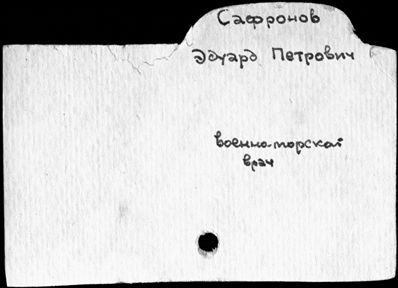 Сафронов
Эдуард Петрович
военно-морской
врач